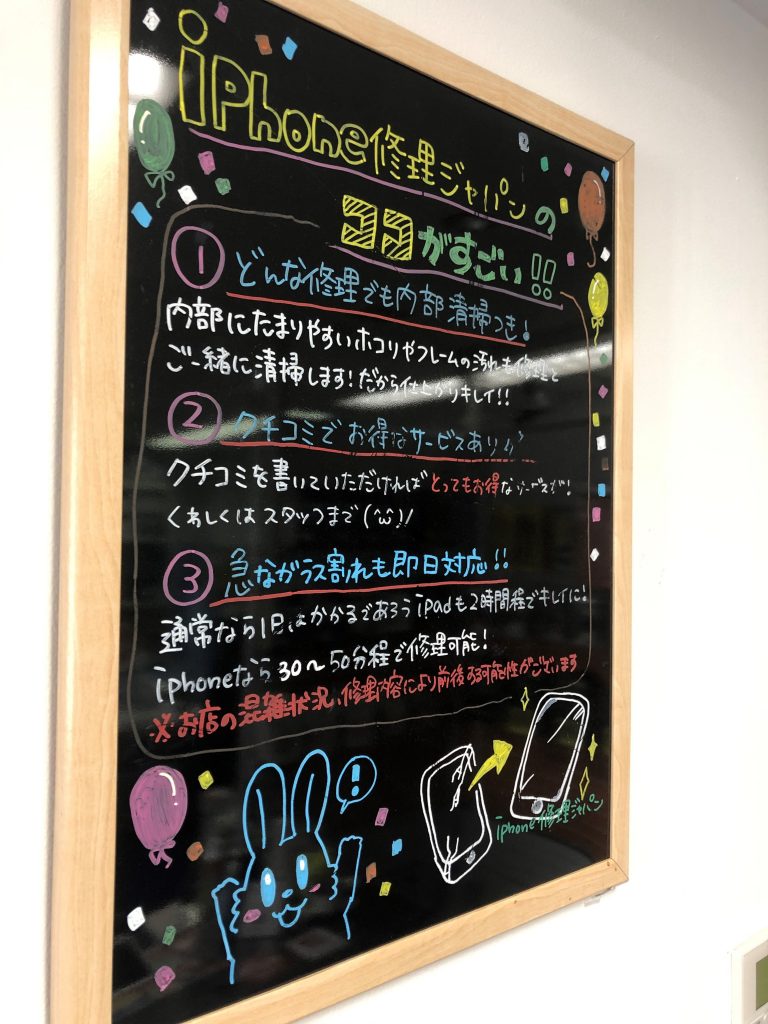 iPhone修理ジャパンの
ココがすごい!!
① どんな修理でも内部清掃つき!
内部にたまりやすいホコリやフレームの汚れも修理と
ご一緒に清掃します!だから仕上がりキレイ!!
② クチコミでお得なサービスあり〃
クチコミを書いていただければとってもお得なサービスが!
くわしくはスタッフまで(^ω^)/
③ 急なガラス割れも即日対応!!
通常なら1日はかかるであろうipadも2時間程でキレイに!
iphoneなら30〜50分程で修理可能!
※お店の混雑状況、修理内容により前後する可能性がございます
!
iphone修理ジャパン